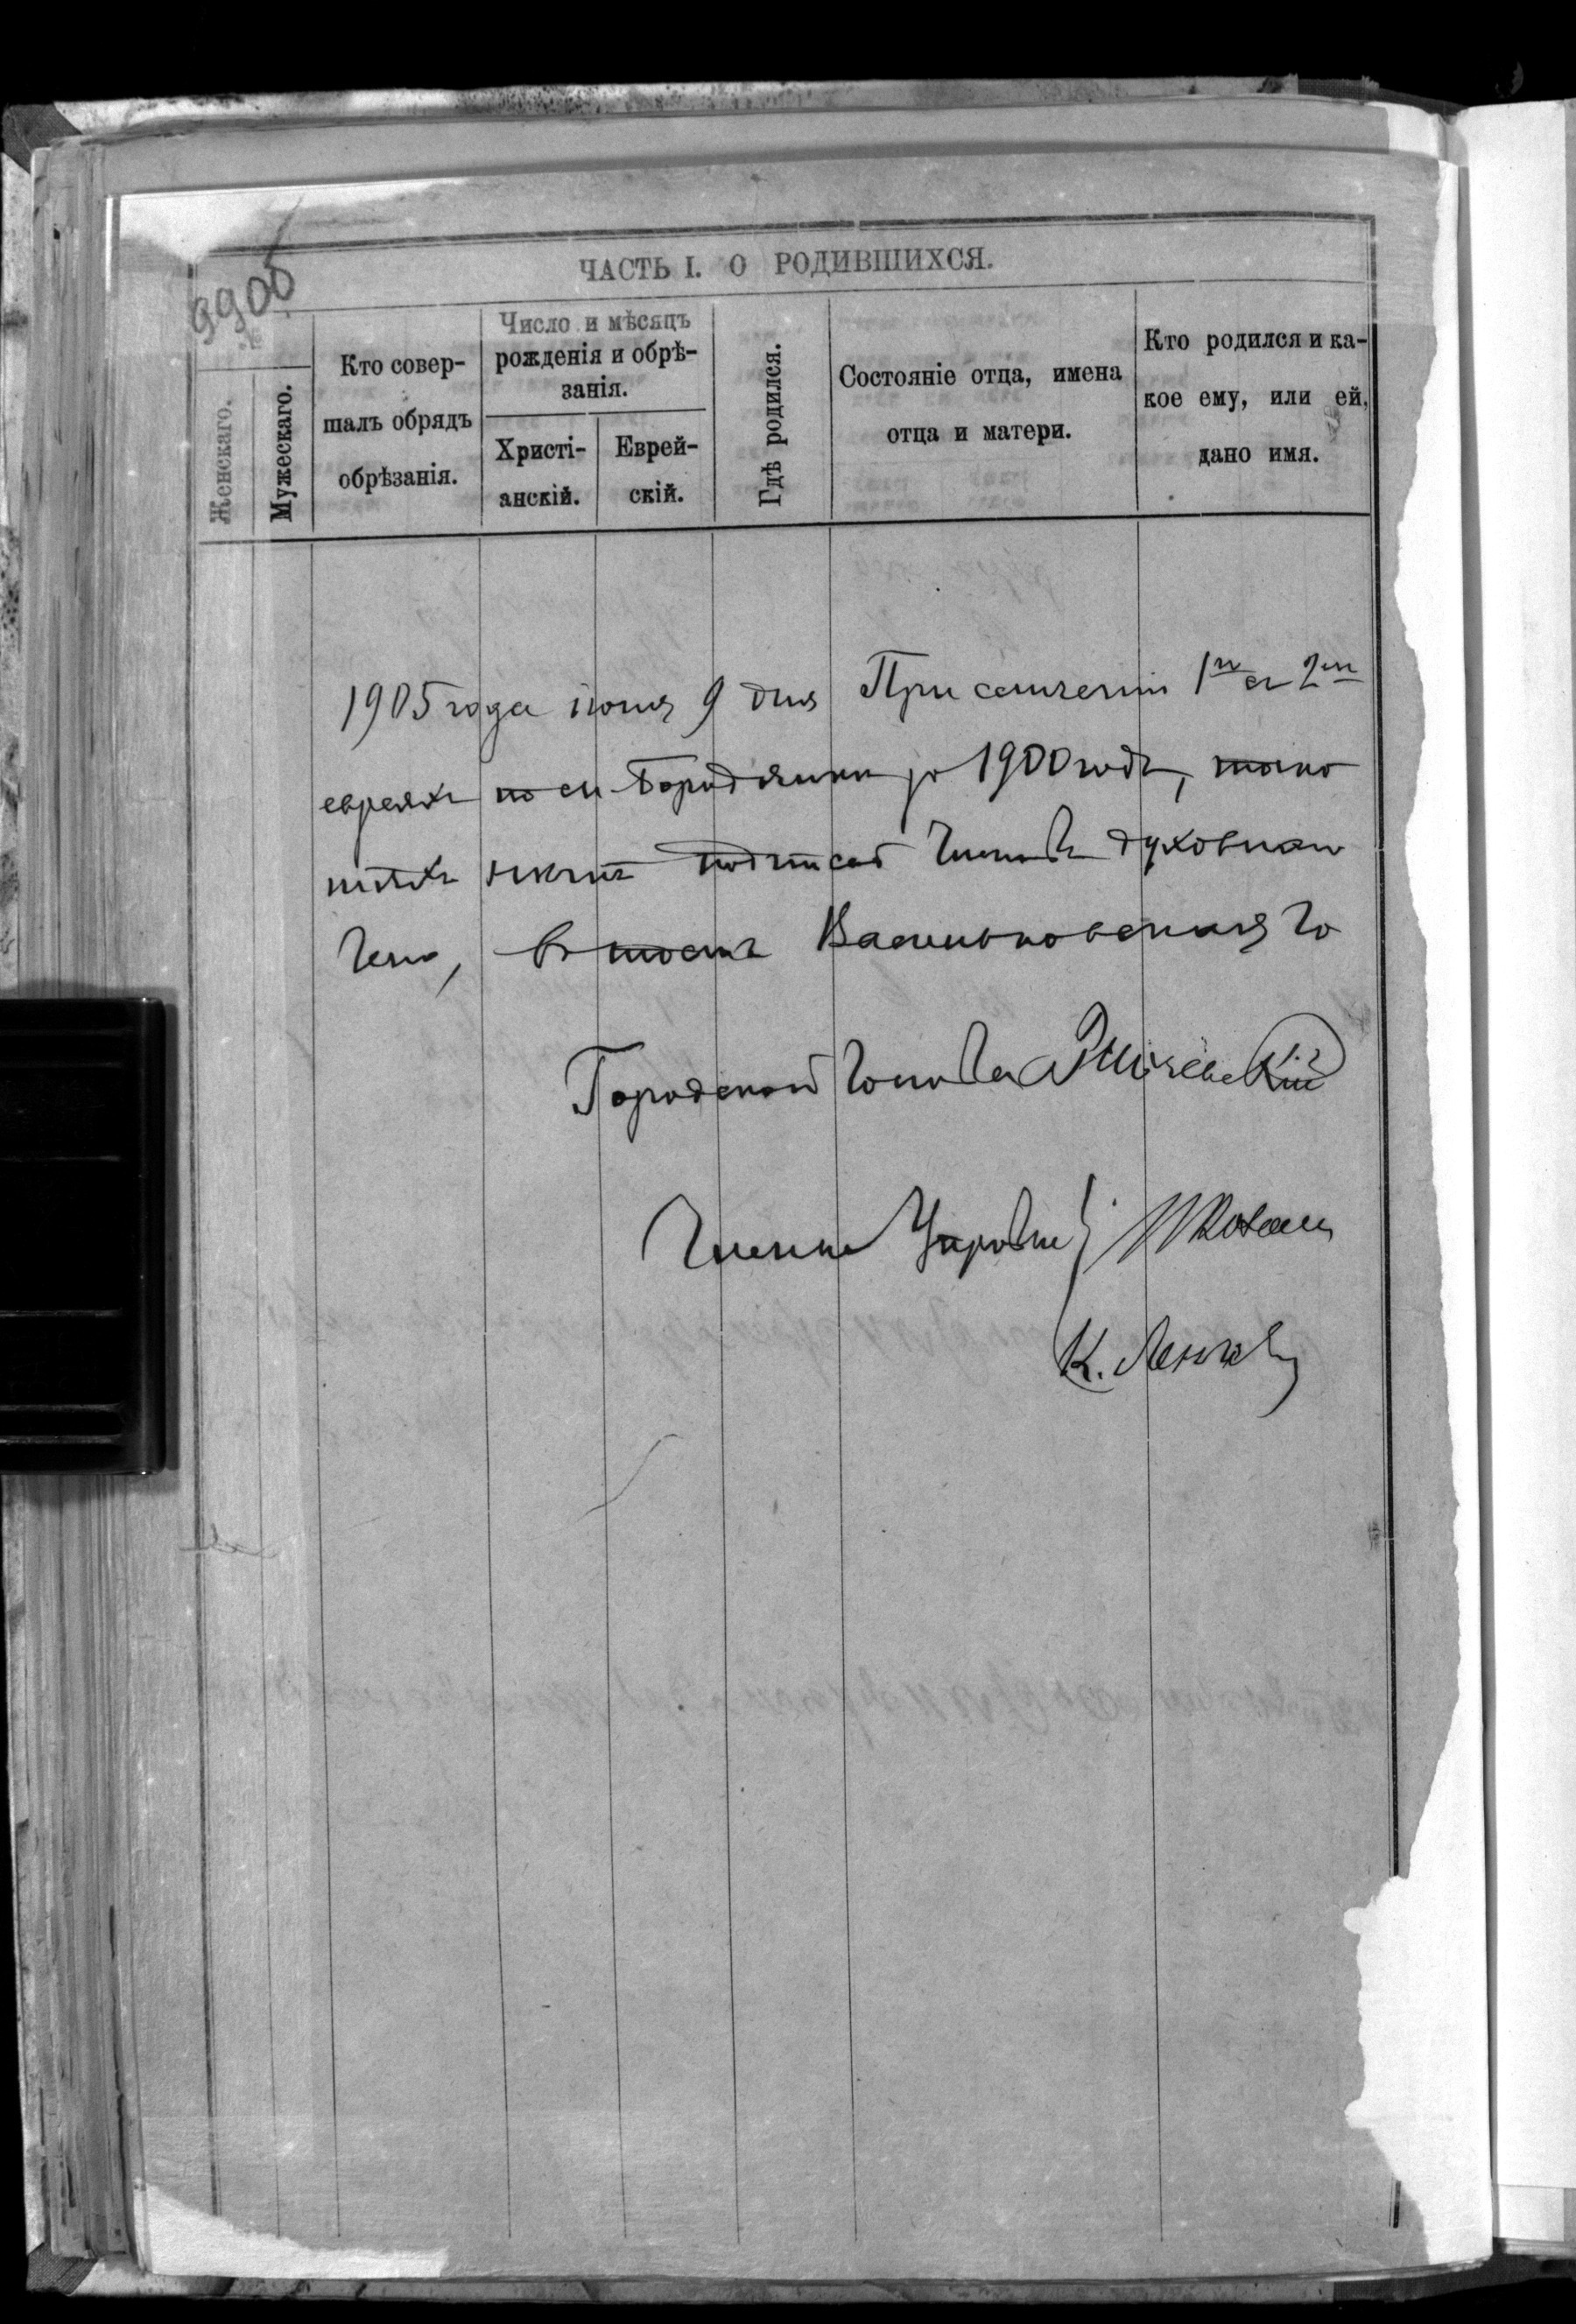 990б
ЧАСТЬ I. О РОДИВШИХСЯ.
№
Женскаго.
Мужескаго.
Кто совер-
шалъ обрядъ
обрѣзанія.
Число и мѣсяцъ
рожденія и обрѣ-
занія.
Христі-
анскій.
Еврей-
скій.
Гдѣ родился.
Состояніе отца, имена
отца и матери.
Кто родился и ка-
кое ему, или ей,
дано имя.
1905 года іюня 9 дня При сличеніи 1го съ 2мъ
евреяхъ по м Бородянки за 1900 годъ,
подписей Членовъ духовнаго
чемъ, Васильковская Го
Городской Голова
Члены Управы
К.